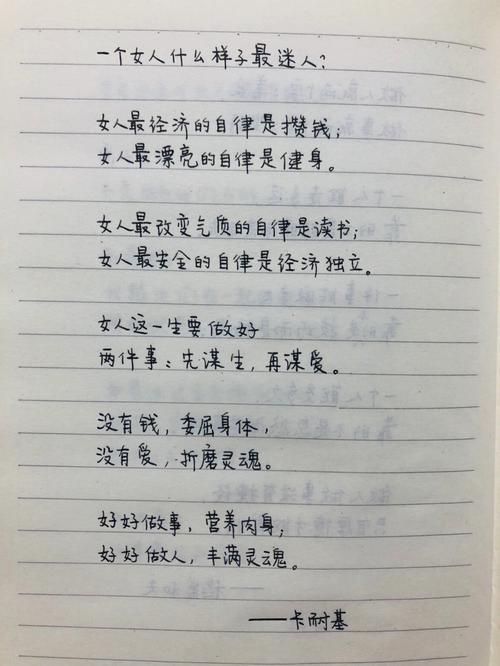 一个女人什么样子最迷人?
女人最经济的自律是攒钱;
女人最漂亮的自律是健身。
女人最改变气质的自律是读书;
女人最安全的自律是经济独立。
女人这一生要做好
两件事:先谋生,再谋爱。
没有钱,委屈身体,
没有爱,折磨灵魂。
好好做事,营养肉身;
好好做人,丰满灵魂。
——卡耐基